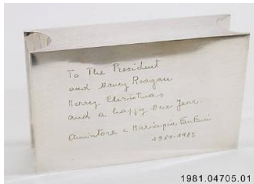 To The President
and Nancy Reagan
Merry Christmas
and a happy New Year.
Amintore e Mariapia Fanfani
1984-1985
1981.04705.01